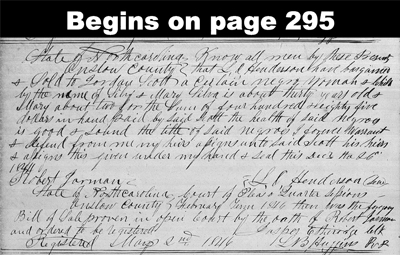 Begins on page 295
State of Northcarolina Know all men by these Presents
Onslow County that L. C. Henderson have bargained
& Sold to London Scott a Certain negro Woman & child
by the name of Silvy & Mary Silva is about thirty years old &
Mary about two for the Sum of four hundred & eighty five
dollars in hand Paid by said Scott the health of said negroes
is good & Sound the title of said negroes I forever Warrant
& defend from me my heirs assigns unto said Scott his heirs
& assigns this given under my hand & Seal this Decr the 26th
Robert Farman L. C. Henderson Seal
State of Northcarolina Court of Pleas & Quarter Sessions
Onslow County February Term 1846 then was the foregoing
Bill of Sale proven in open Court by the oath of Robert Farman
and ordered to be registered Jasper Etheridge Clk
Registered May 2nd 1846 L B Huggins P.R.